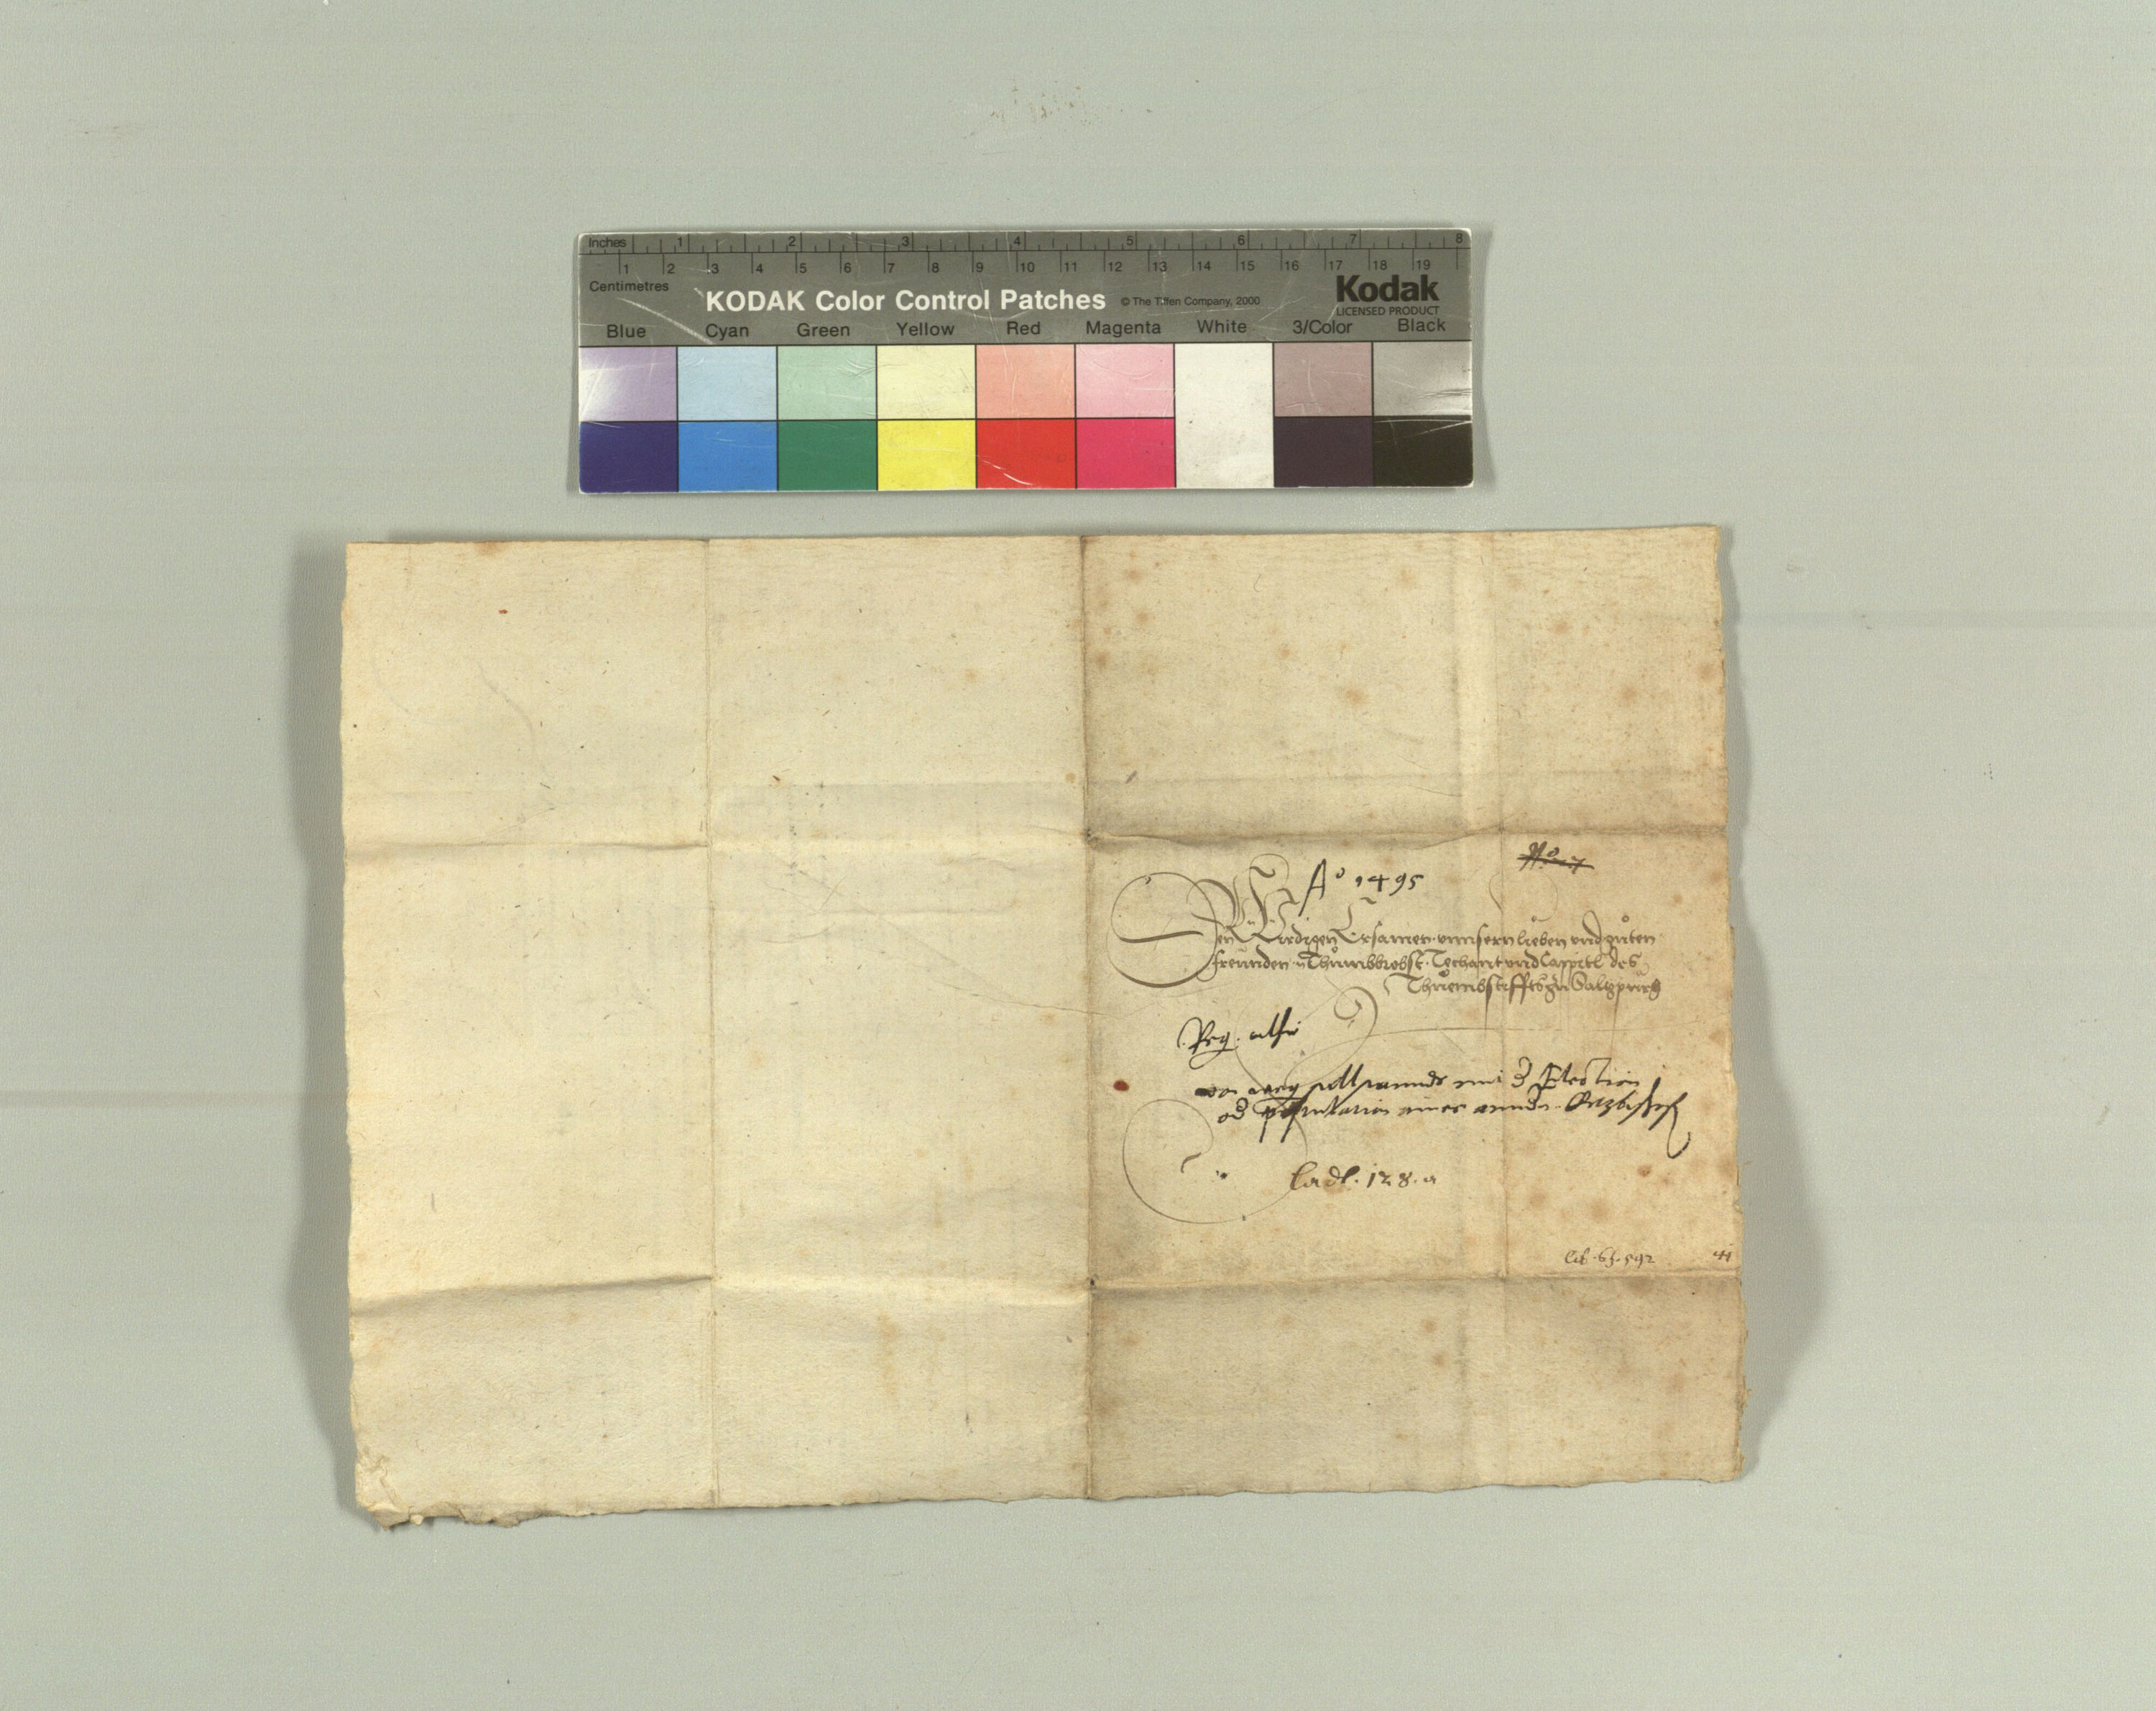 Inches 1 2 3 4 5 6 7 8
1 2 3 4 5 6 7 8 9 10 11 12 13 14 15 16 17 18 19
Centimetres
KODAK Color Control Patches © The Tiffen Company, 2000 Kodak
LICENSED PRODUCT
Blue Cyan Green Yellow Red Magenta White 3/Color Black
No. 7
Ao 1495
Den Wirdigen Ersamen unnsern lieben und gůten
freunden Thůmbbrobst Techant und Cappitl des
Thůembstiffts zu Saltzpurg
Reg.
Election
od eines Ertzbischof
Ladl. 128. a
lib. 63. 592
44